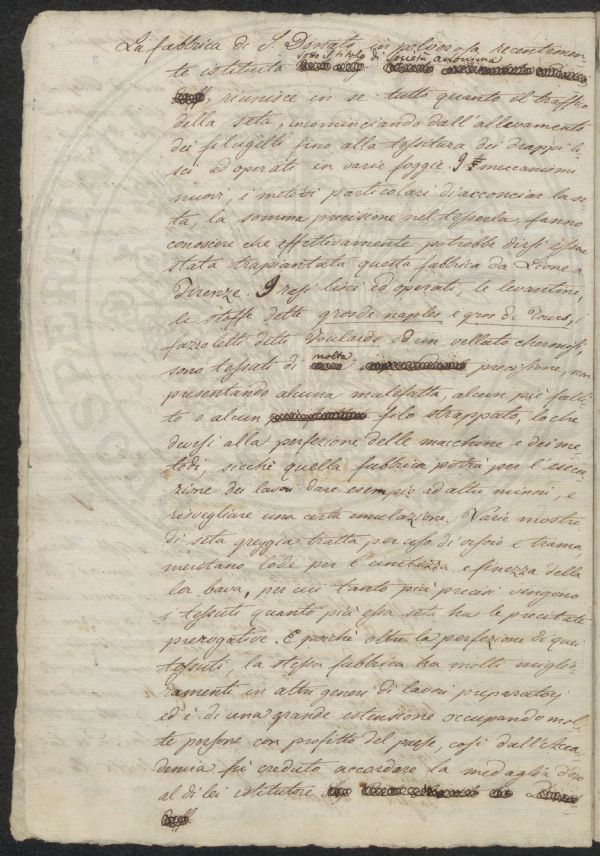 La fabbrica di S. Donato in polverosa recentemen-
sotto il titolo di Società anonima
te istituita
riunisce in se tutto quanto il traffico
della seta, incominciando dall'allevamento
dei filugelli fino alla tessitura dei drappi li-
sci ed operati in varie foggie. I meccanismi
nuovi, i metodi particolari di acconciar la se-
ta, la somma precisione nel tesserla, fanno
conoscere che effettivamente potrebbe dirsi essere
stata trapiantata questa fabbrica da Lione a
Firenze. I rasi lisci ed operati, le levantine,
le stoffe dette gros de naples e gros de Tours, i
fazzoletti detti Foulards ed un velluto chermosi,
sono tessuti di molta precisione, non
presentando alcuna malefatta, alcun piè falli-
to o alcun filo strappato, lo che
devesi alla perfezione delle macchine e dei me-
todi, sicchè quella fabbrica potrà per l'esecu-
zione dei lavori dare esempio ad altre minori, e
risvegliare una certa emulazione. Varie mostre
di seta greggia tratta, per uso di orsoio e trama
meritano lode per l'unitezza e finezza della
lor bava, per cui tanto più precisi vengono
i tessuti quanto più essa seta ha le precitate
prerogative. E poichè oltre la perfezione di quei
tessuti, la stessa fabbrica ha molti miglio-
ramenti in altri generi di lavori preparatorj
ed è di una grande estensione occupando mol-
te persone con profitto del paese, così dall'Acca-
demia fù creduto accordare la medaglia d'oro
al di lei istitutore